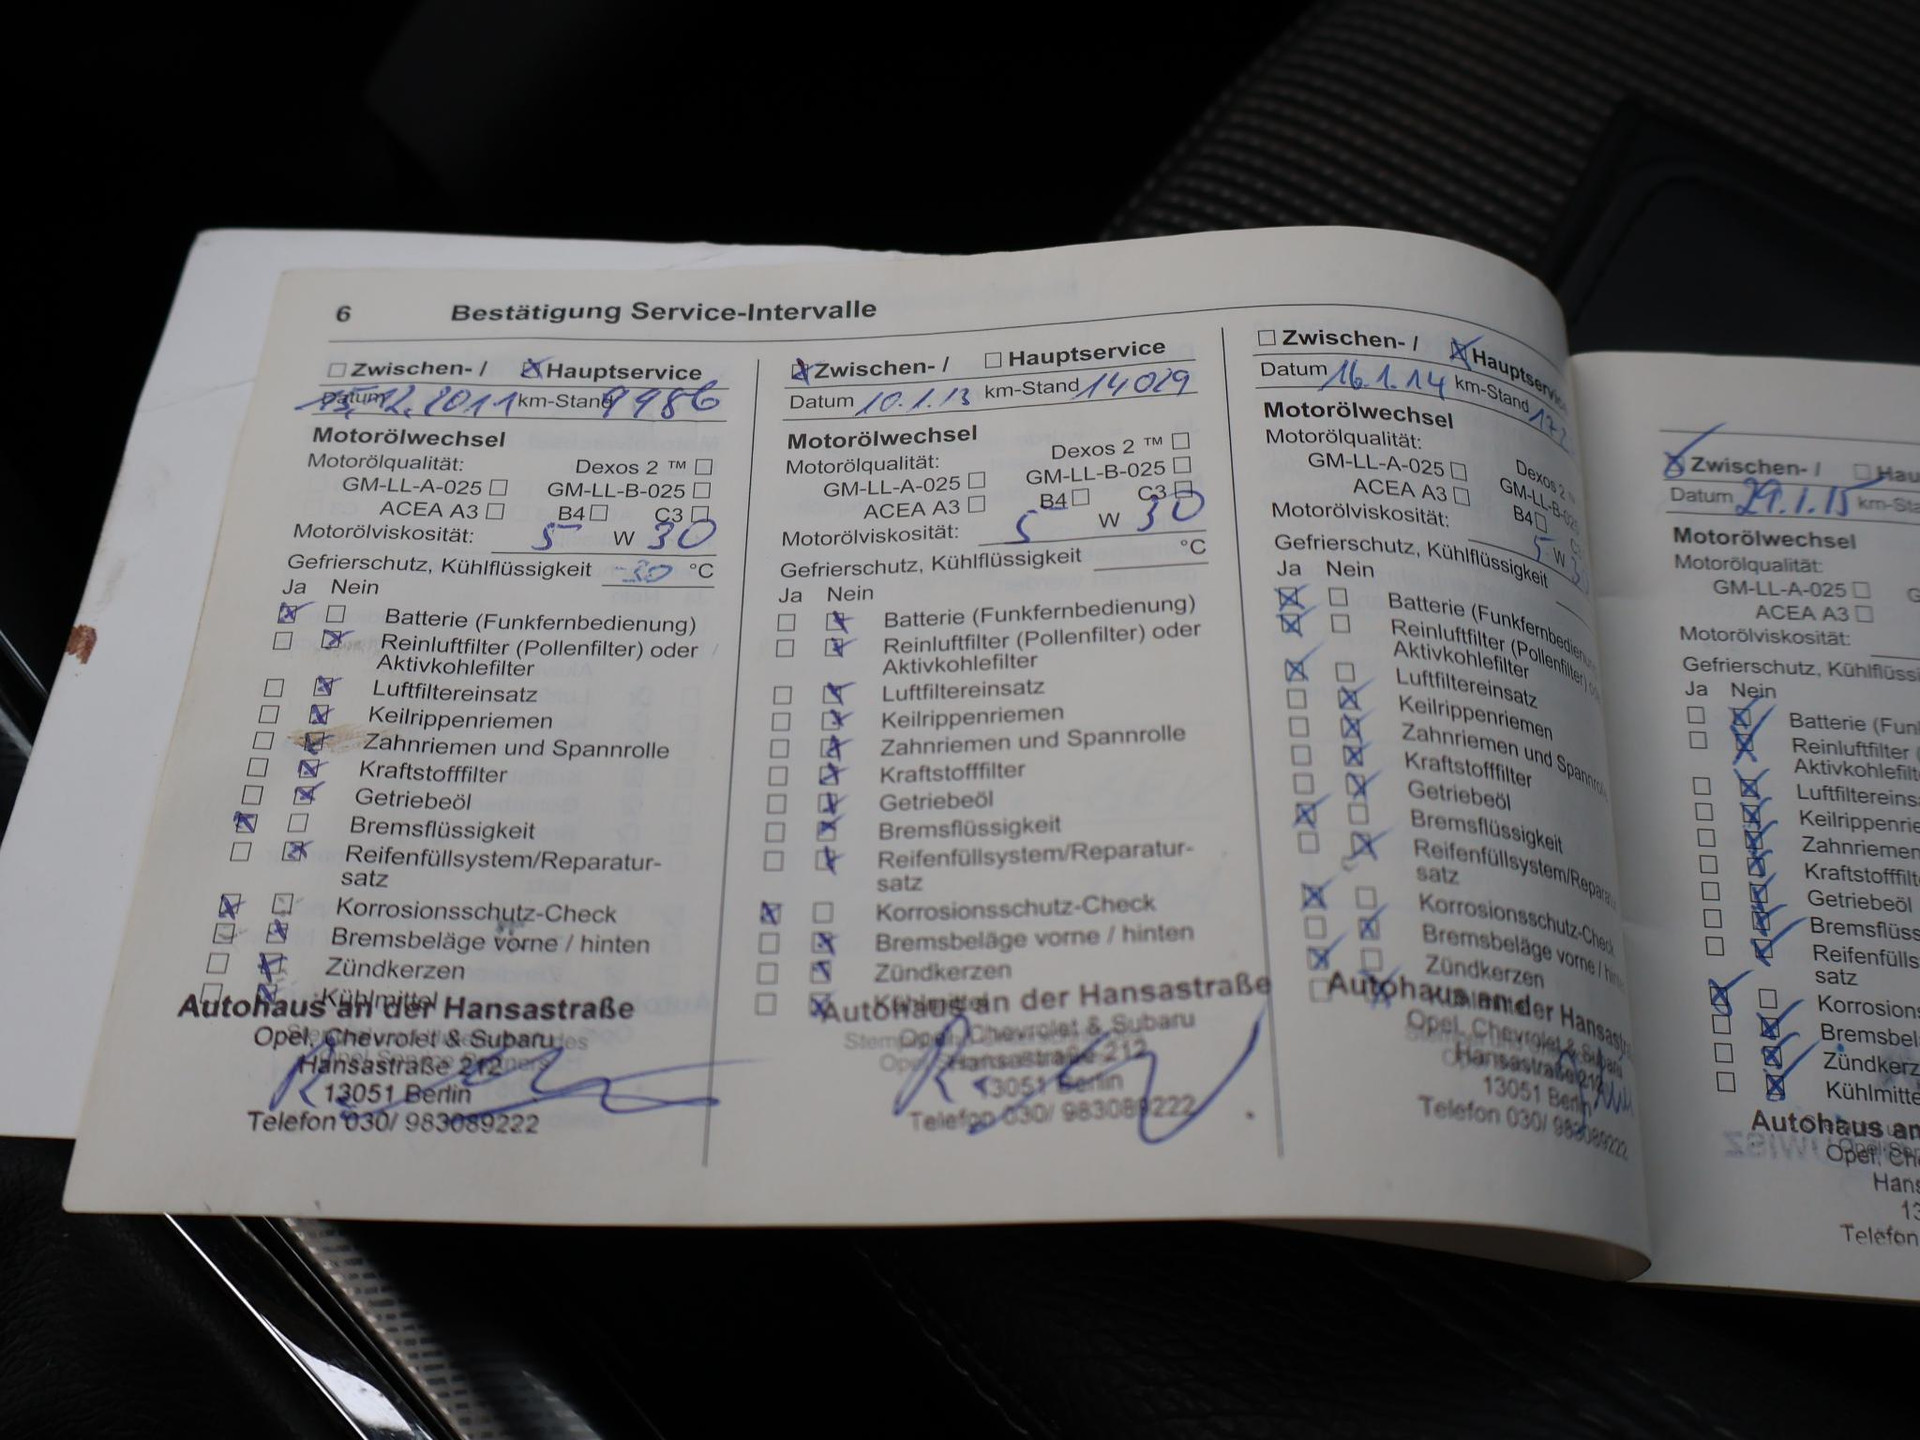 6 Bestätigung Service-Intervalle
Zwischen- / Hauptservice
Datum 15.12.2011 km-Stand 9986
Motorölwechsel
Motorölqualität: Dexos 2 ™
GM-LL-A-025 GM-LL-B-025
ACEA A3 B4 C3
Motorölviskosität: 5 W 30
Gefrierschutz, Kühlflüssigkeit -30 °C
Ja Nein
Batterie (Funkfernbedienung)
Reinluftfilter (Pollenfilter) oder
Aktivkohlefilter
Luftfiltereinsatz
Keilrippenriemen
Zahnriemen und Spannrolle
Kraftstofffilter
Getriebeöl
Bremsflüssigkeit
Reifenfüllsystem/Reparatur-
satz
Korrosionsschutz-Check
Bremsbeläge vorne / hinten
Zündkerzen
Kühlmittel
Autohaus an der Hansastraße
Opel, Chevrolet & Subaru
Hansastraße 212
13051 Berlin
Telefon 030/ 983089222
Zwischen- / Hauptservice
Datum 10.1.13 km-Stand 14029
Motorölwechsel
Motorölqualität: Dexos 2 ™
GM-LL-A-025 GM-LL-B-025
ACEA A3 B4 C3
Motorölviskosität: 5 W 30
Gefrierschutz, Kühlflüssigkeit °C
Ja Nein
Batterie (Funkfernbedienung)
Reinluftfilter (Pollenfilter) oder
Aktivkohlefilter
Luftfiltereinsatz
Keilrippenriemen
Zahnriemen und Spannrolle
Kraftstofffilter
Getriebeöl
Bremsflüssigkeit
Reifenfüllsystem/Reparatur-
satz
Korrosionsschutz-Check
Bremsbeläge vorne / hinten
Zündkerzen
Kühlmittel
Autohaus an der Hansastraße
Opel, Chevrolet & Subaru
Hansastraße 212
13051 Berlin
Telefon 030/ 983089222
Zwischen- / Hauptservice
Datum 16.1.14 km-Stand 172
Motorölwechsel
Motorölqualität: Dexos 2
GM-LL-A-025 GM-LL-B-025
ACEA A3 B4
Motorölviskosität: 5 W 30
Gefrierschutz, Kühlflüssigkeit
Ja Nein
Batterie (Funkfernbedienung
Reinluftfilter (Pollenfilter) o
Aktivkohlefilter
Luftfiltereinsatz
Keilrippenriemen
Zahnriemen und Spannrol
Kraftstofffilter
Getriebeöl
Bremsflüssigkeit
Reifenfüllsystem/Repara
satz
Korrosionsschutz-Check
Bremsbeläge vorne / hin
Zündkerzen
Autohaus an der Hansastr
Opel, Chevrolet & Subaru
Hansastraße 212
13051 Berlin
Telefon 030/ 983089222
Zwischen- / Hau
Datum 29.1.15 km-Sta
Motorölwechsel
Motorölqualität:
GM-LL-A-025 G
ACEA A3
Motorölviskosität:
Gefrierschutz, Kühlflüssi
Ja Nein
Batterie (Funk
Reinluftfilter
Aktivkohlefilte
Luftfiltereinsa
Keilrippenrie
Zahnriemen
Kraftstofffilt
Getriebeöl
Bremsflüss
Reifenfülls
satz
Korrosions
Bremsbel
Zündkerz
Kühlmitte
Autohaus an
Opel, Ch
Hans
13
Telefon